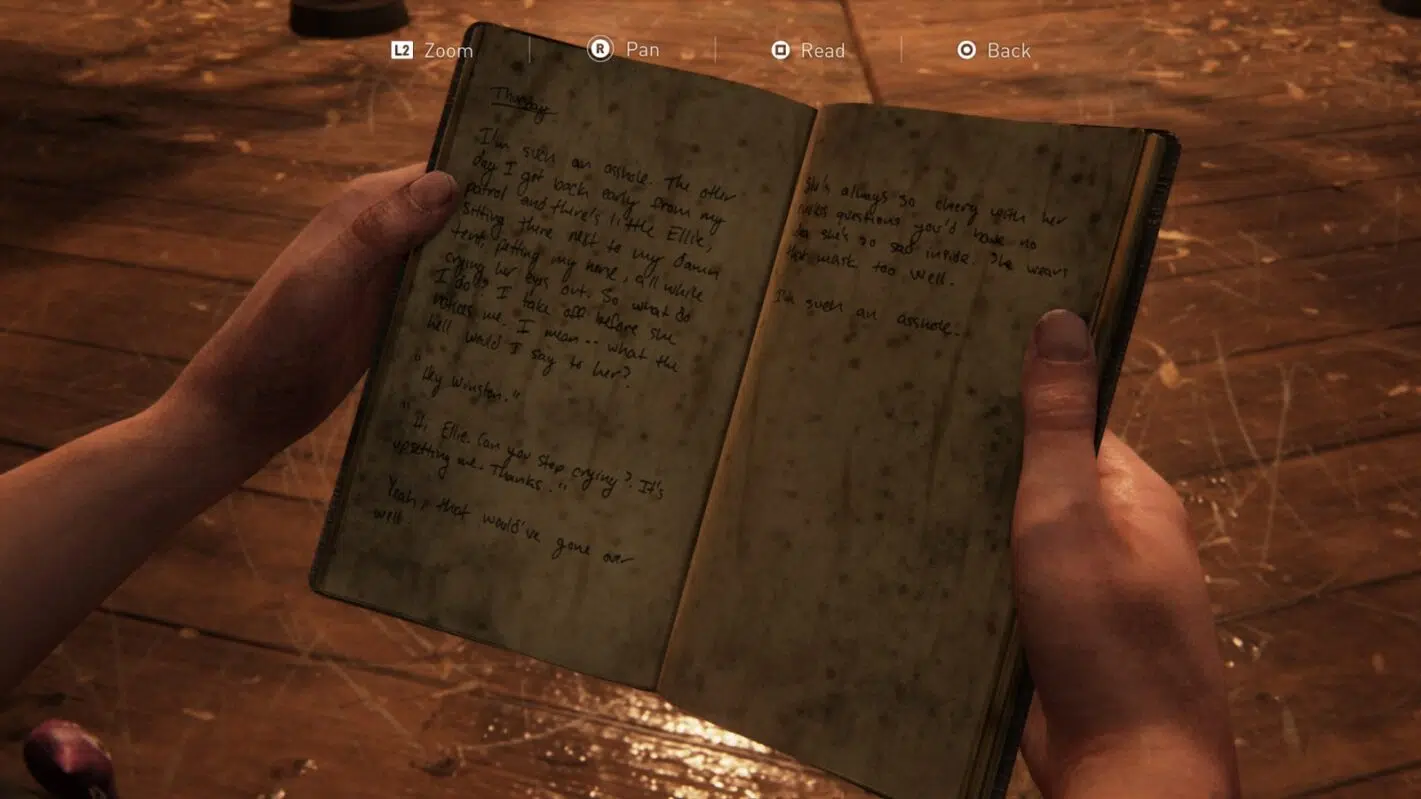 L2 Zoom
R Pan
Read
Back
Thursday
I'm such an asshole. The other
day I get back early from my
patrol and there's little Ellie,
sitting there next to my damn
tent, petting my horse, all while
crying her eyes out. So what do
I do? I take off before she
notices me. I mean -- what the
hell would I say to her?
"
Hey Winston."
"
Hi, Ellie. Can you stop crying? It's
upsetting me. Thanks."
Yeah, that would've gone over
well.
She's always so cheery with her
questions you'd have no
she's so sad inside. She wears
that mask too well.
I'm such an asshole.